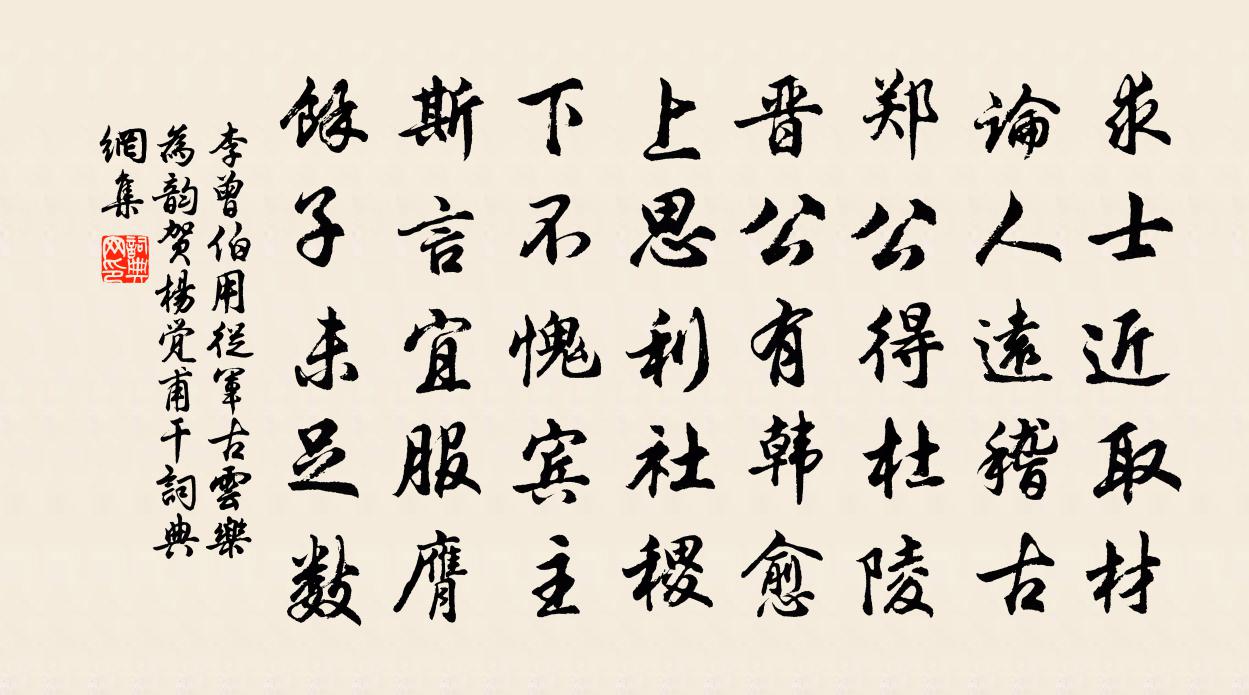 求士近取材
論人遠稽古
郑公得杜陵
晋公有韩愈
上思利社稷
下不愧宾主
斯言宜服膺
餘子未足数
李曾伯用從軍古雲樂
為韵贺楊觉甫干詞典
網集
詞典
网印